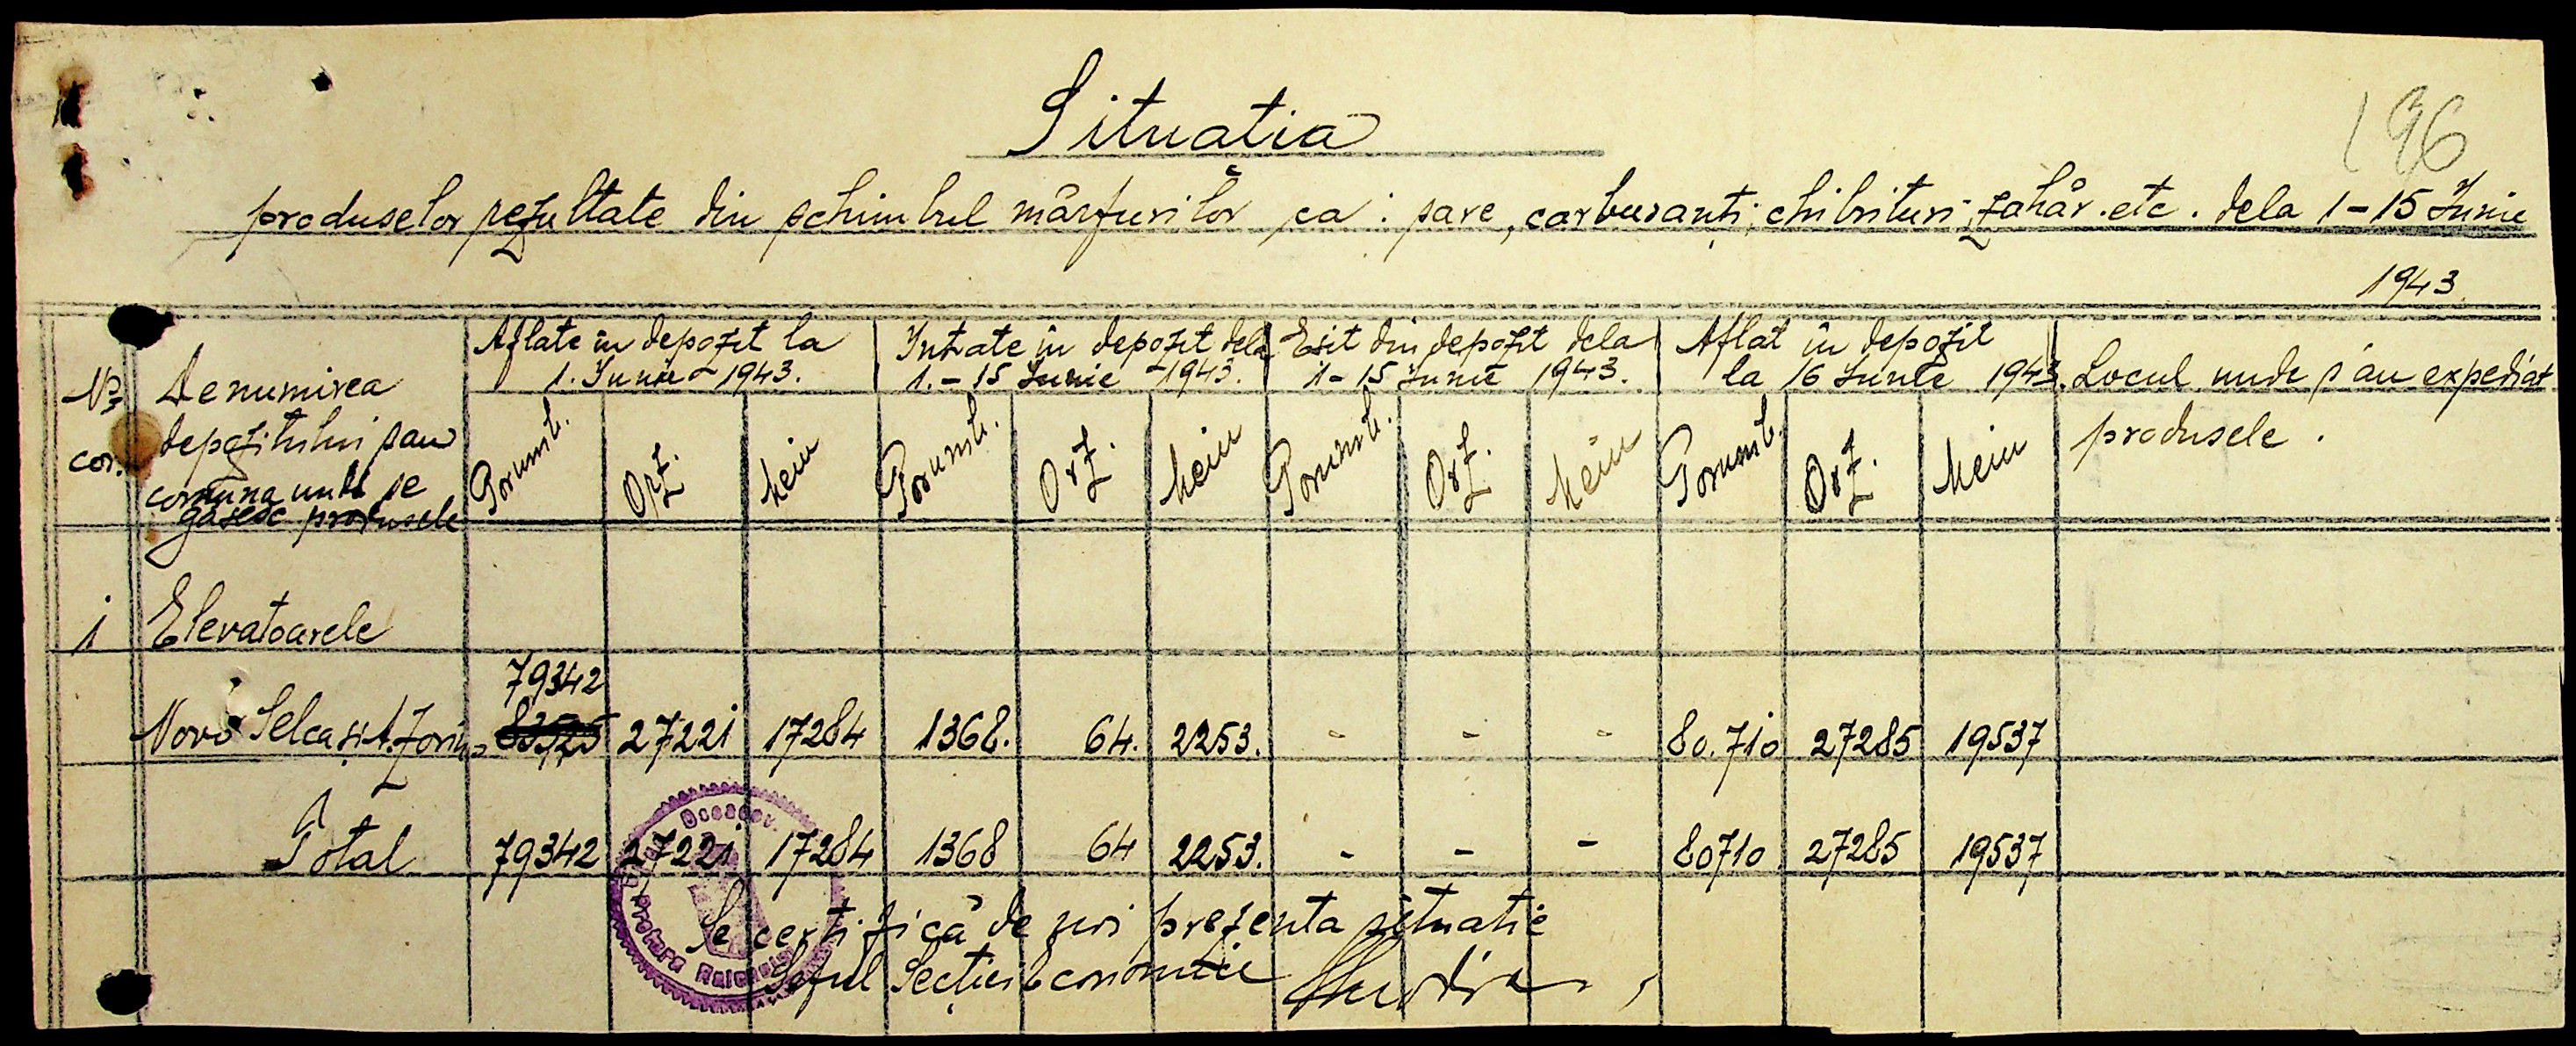 196
Situatia
produselor rezultate din schimbul mărfurilor ca: sare, carburanți, chibrituri, zahăr. etc. dela 1-15 Iunie
1943
Nr. cor.
Denumirea depozitului sau comuna unde se găsesc produsele
Aflate in depozit la 1. Iunie 1943.
Intrate in depozit dela 1.-15 Iunie 1943.
Esit din depozit dela 1-15 Iunie 1943.
Aflat in depozit la 16 Iunie 1943.
Locul unde s'au expediat produsele.
Porumb. Orz. Meiu Porumb. Orz. Meiu Porumb. Orz. Meiu Porumb. Orz. Meiu
1 Elevatoarele
79342
Novo Selca și 27221 17284 1368. 64. 2253. - - - 80.710 27285 19537
Total 79342 27221 17284 1368 64 2253. - - - 80710 27285 19537
Se certifică de noi prezenta situatie
Șeful Secției Economice